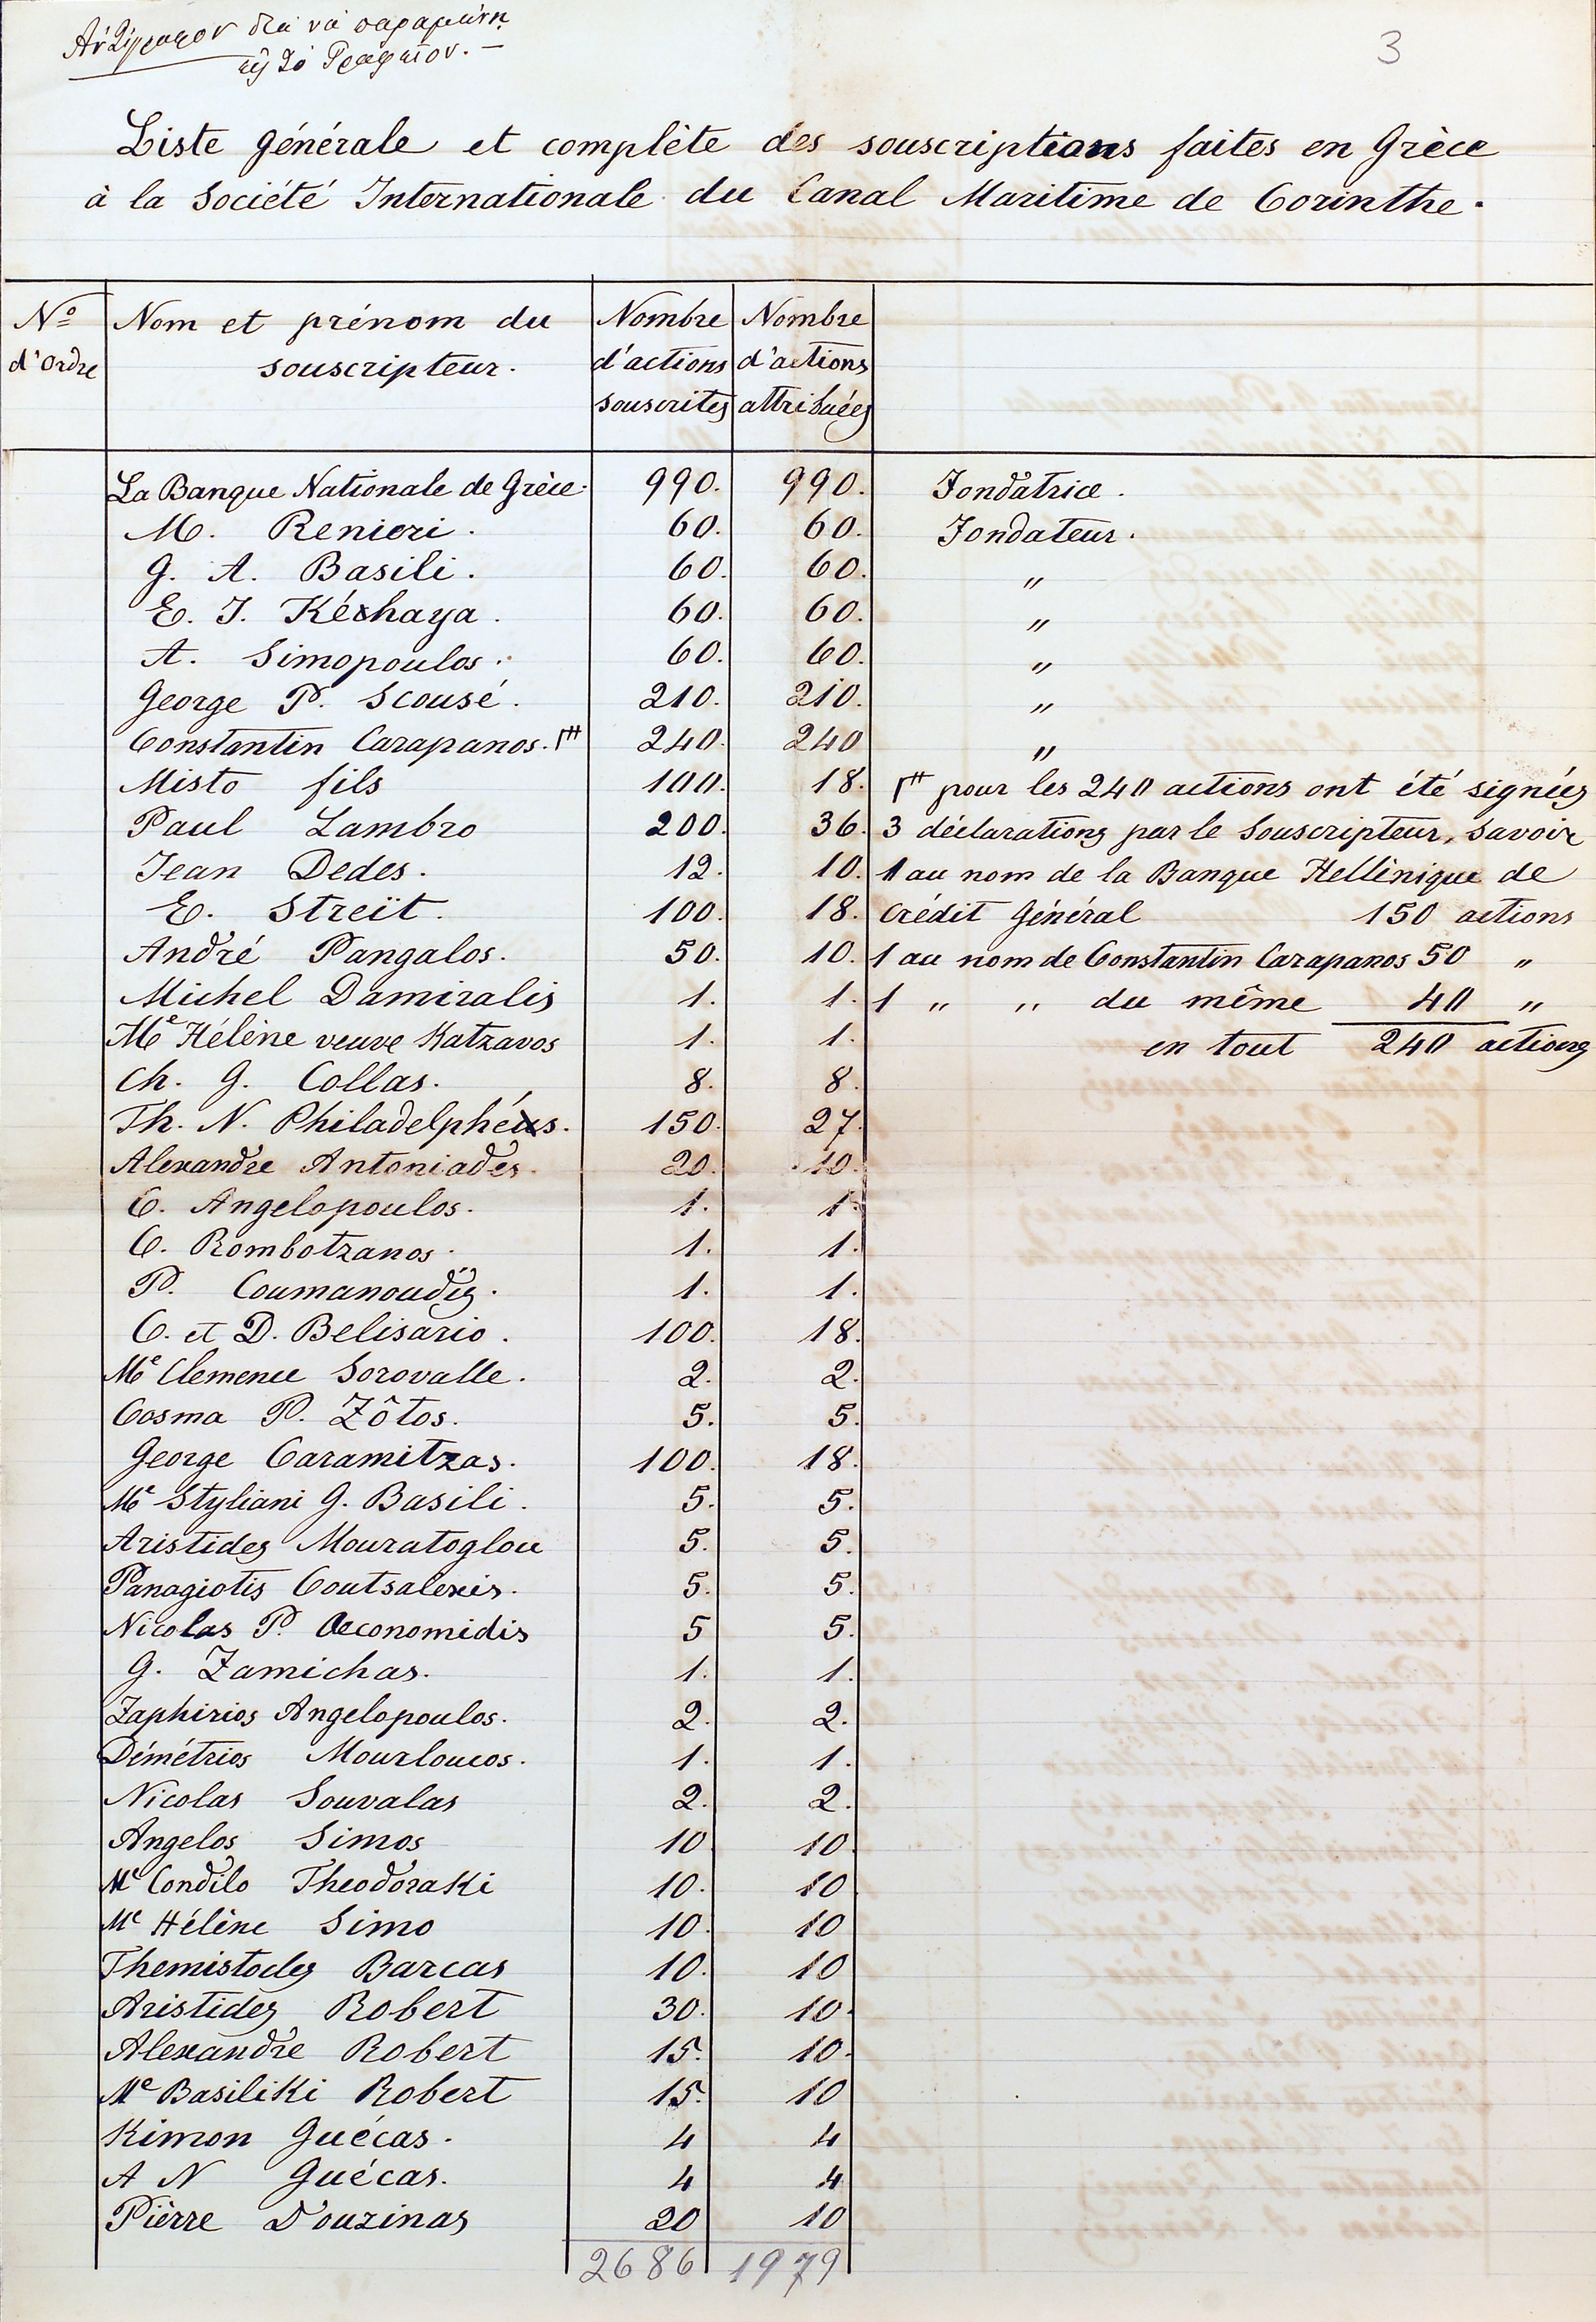 Ἀντίγραφον διὰ νὰ παραμείνῃ
εἰς τὸ Γραφεῖον. —
3
Liste générale et complète des souscriptions faites en Grèce
à la Société Internationale du Canal Maritime de Corinthe.
Nº d'Ordre | Nom et prénom du souscripteur. | Nombre d'actions souscrites | Nombre d'actions attribuées
La Banque Nationale de Grèce. 990. 990. Fondatrice.
M. Renieri. 60. 60. Fondateur.
G. A. Basili. 60. 60. "
E. J. Kéxhaya. 60. 60. "
A. Simopoulos. 60. 60. "
George P. Scousé. 210. 210. "
Constantin Carapanos. 240. 240 "
Misto fils 100. 18. pour les 240 actions ont été signées
Paul Lambro 200. 36. 3 déclarations par le Souscripteur, savoir
Jean Dedes. 12. 10. 1 au nom de la Banque Hellénique de
E. Streït. 100. 18. Crédit Général 150 actions
André Pangalos. 50. 10. 1 au nom de Constantin Carapanos 50 "
Michel Damiralis 1. 1. 1 " " du même 40 "
Me Hélène veuve Katzavos 1. 1. en tout 240 actions
Ch. G. Collas. 8. 8.
Th. N. Philadelphéus. 150. 27.
Alexandre Antoniades. 20. 10.
C. Angelopoulos. 1. 1.
C. Rombotzanos. 1. 1.
P. Coumanoudis. 1. 1.
C. et D. Belisario. 100. 18.
Me Clemence Sorovalle. 2. 2.
Cosma P. Zôtos. 5. 5.
George Caramitzas. 100. 18.
Me Styliani G. Basili. 5. 5.
Aristides Mouratoglou 5. 5.
Panagiotis Coutsalexis. 5. 5.
Nicolas P. Oeconomidis 5 5.
G. Zamichas. 1. 1.
Zaphirios Angelopoulos. 2. 2.
Démétrios Mourloucos. 1. 1.
Nicolas Souvalas 2. 2.
Angelos Simos 10 10
Me Condilo Theodoraki 10. 10
Me Hélène Simo 10. 10
Themistocles Barcas 10. 10
Aristides Robert 30. 10.
Alexandre Robert 15. 10.
Me Basiliki Robert 15. 10
Kimon Guécas. 4 4
A N Guécas. 4 4
Pièrre Douzinas 20 10
2686 1979